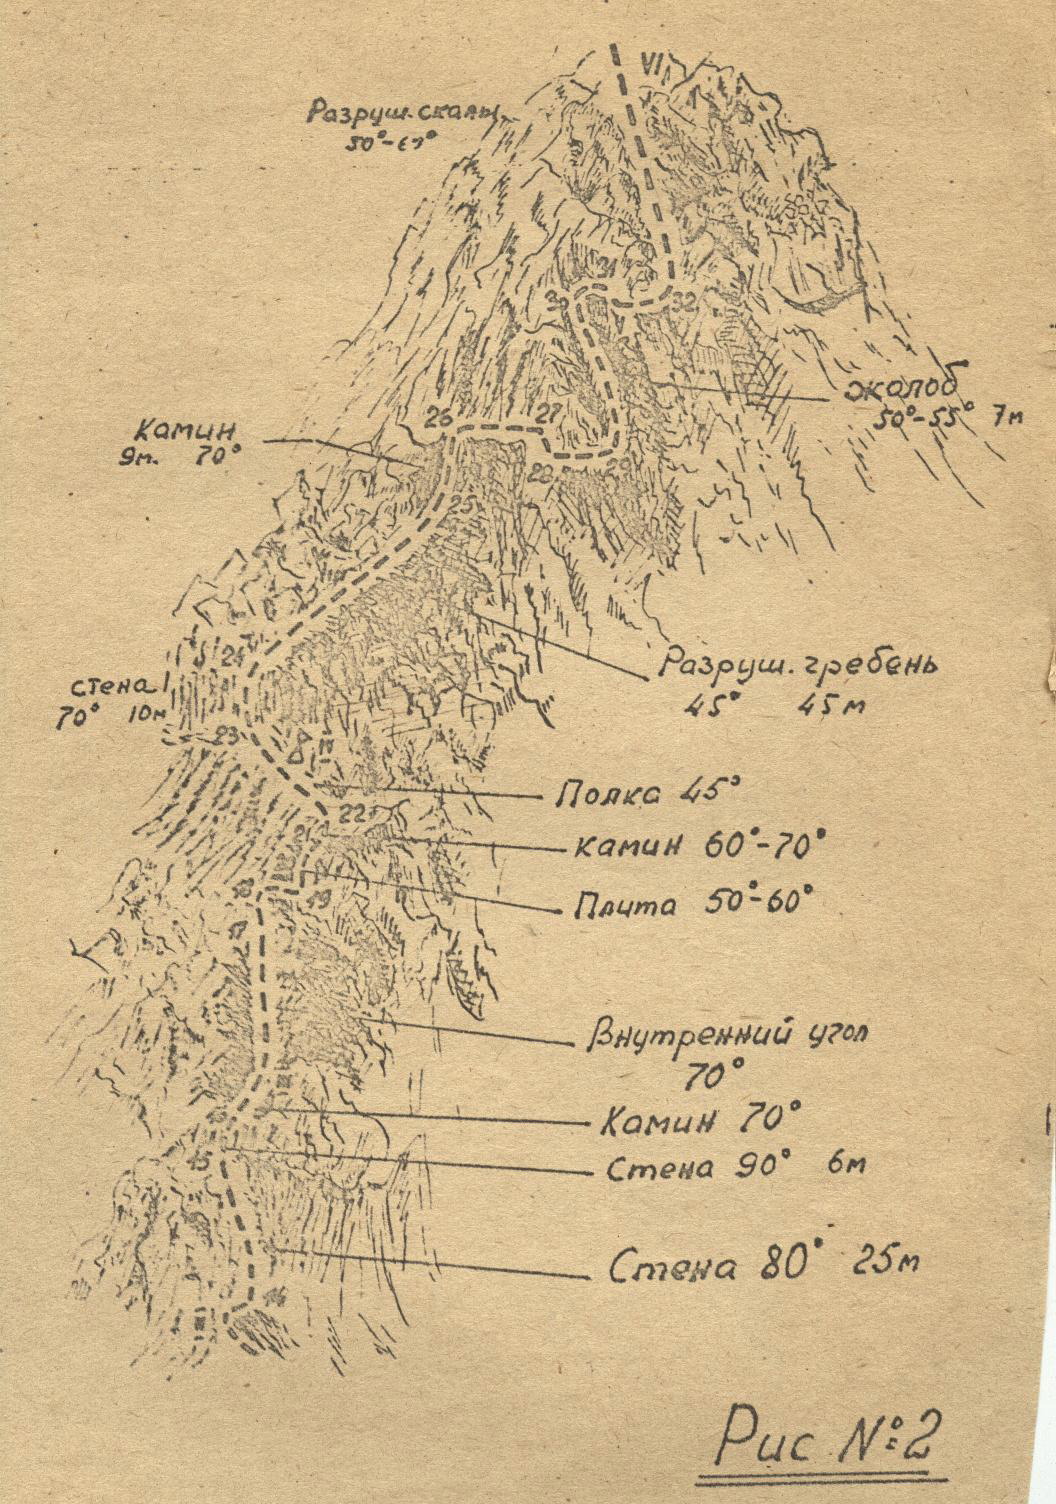 VI
Разруш. скалы
50°-60°
31
30
32
жалоб
50°-55° 7м
26
27
Камин
9м. 70°
28
29
25
24
Разруш. гребень
45° 45м
стена
70° 10м
23
Полка 45°
22
21
камин 60°-70°
18
19
Плита 50°-60°
17
Внутренний угол
70°
Камин 70°
Стена 90° 6м
15
Стена 80° 25м
14
Рис №2